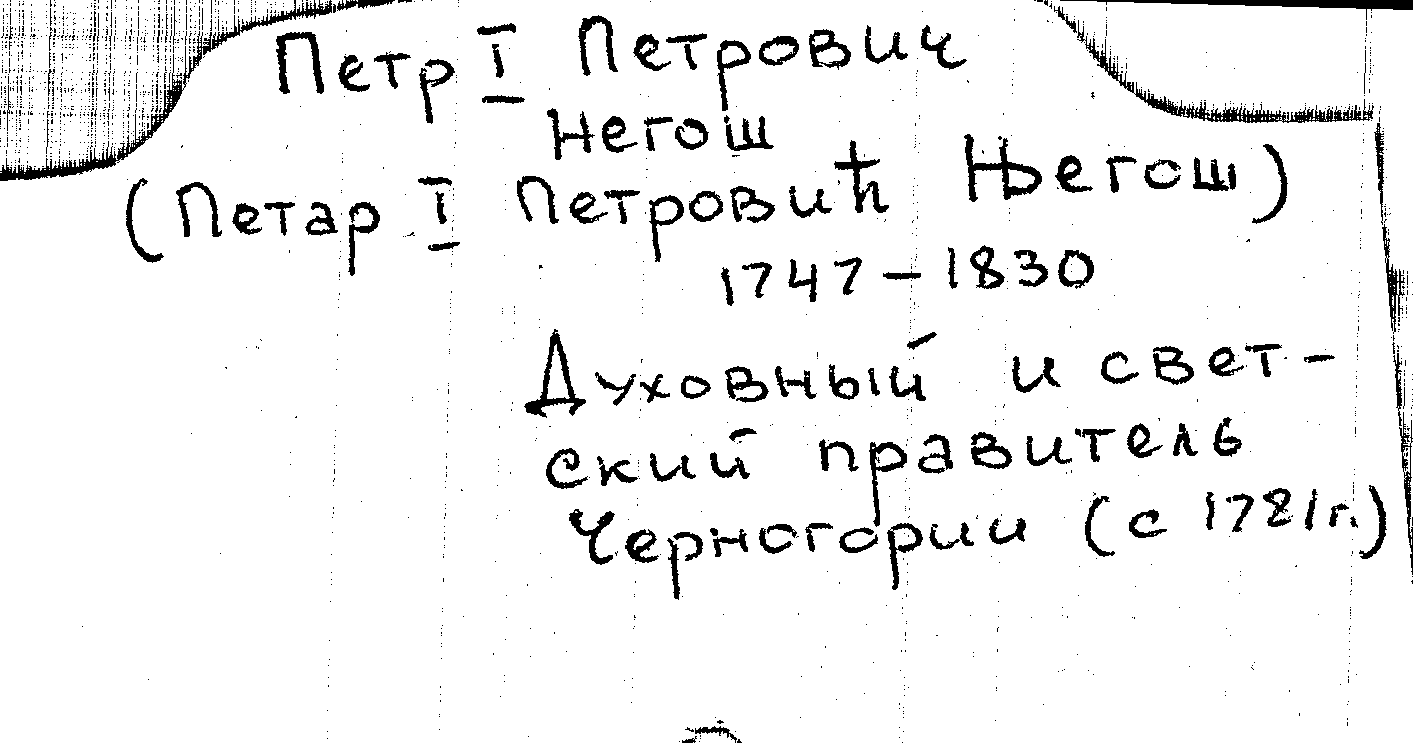 Петр I Петрович
Негош
(Петар I Петровић Његош)
1747 – 1830
Духовный и свет-
ский правитель
Черногории (с 1781г.)